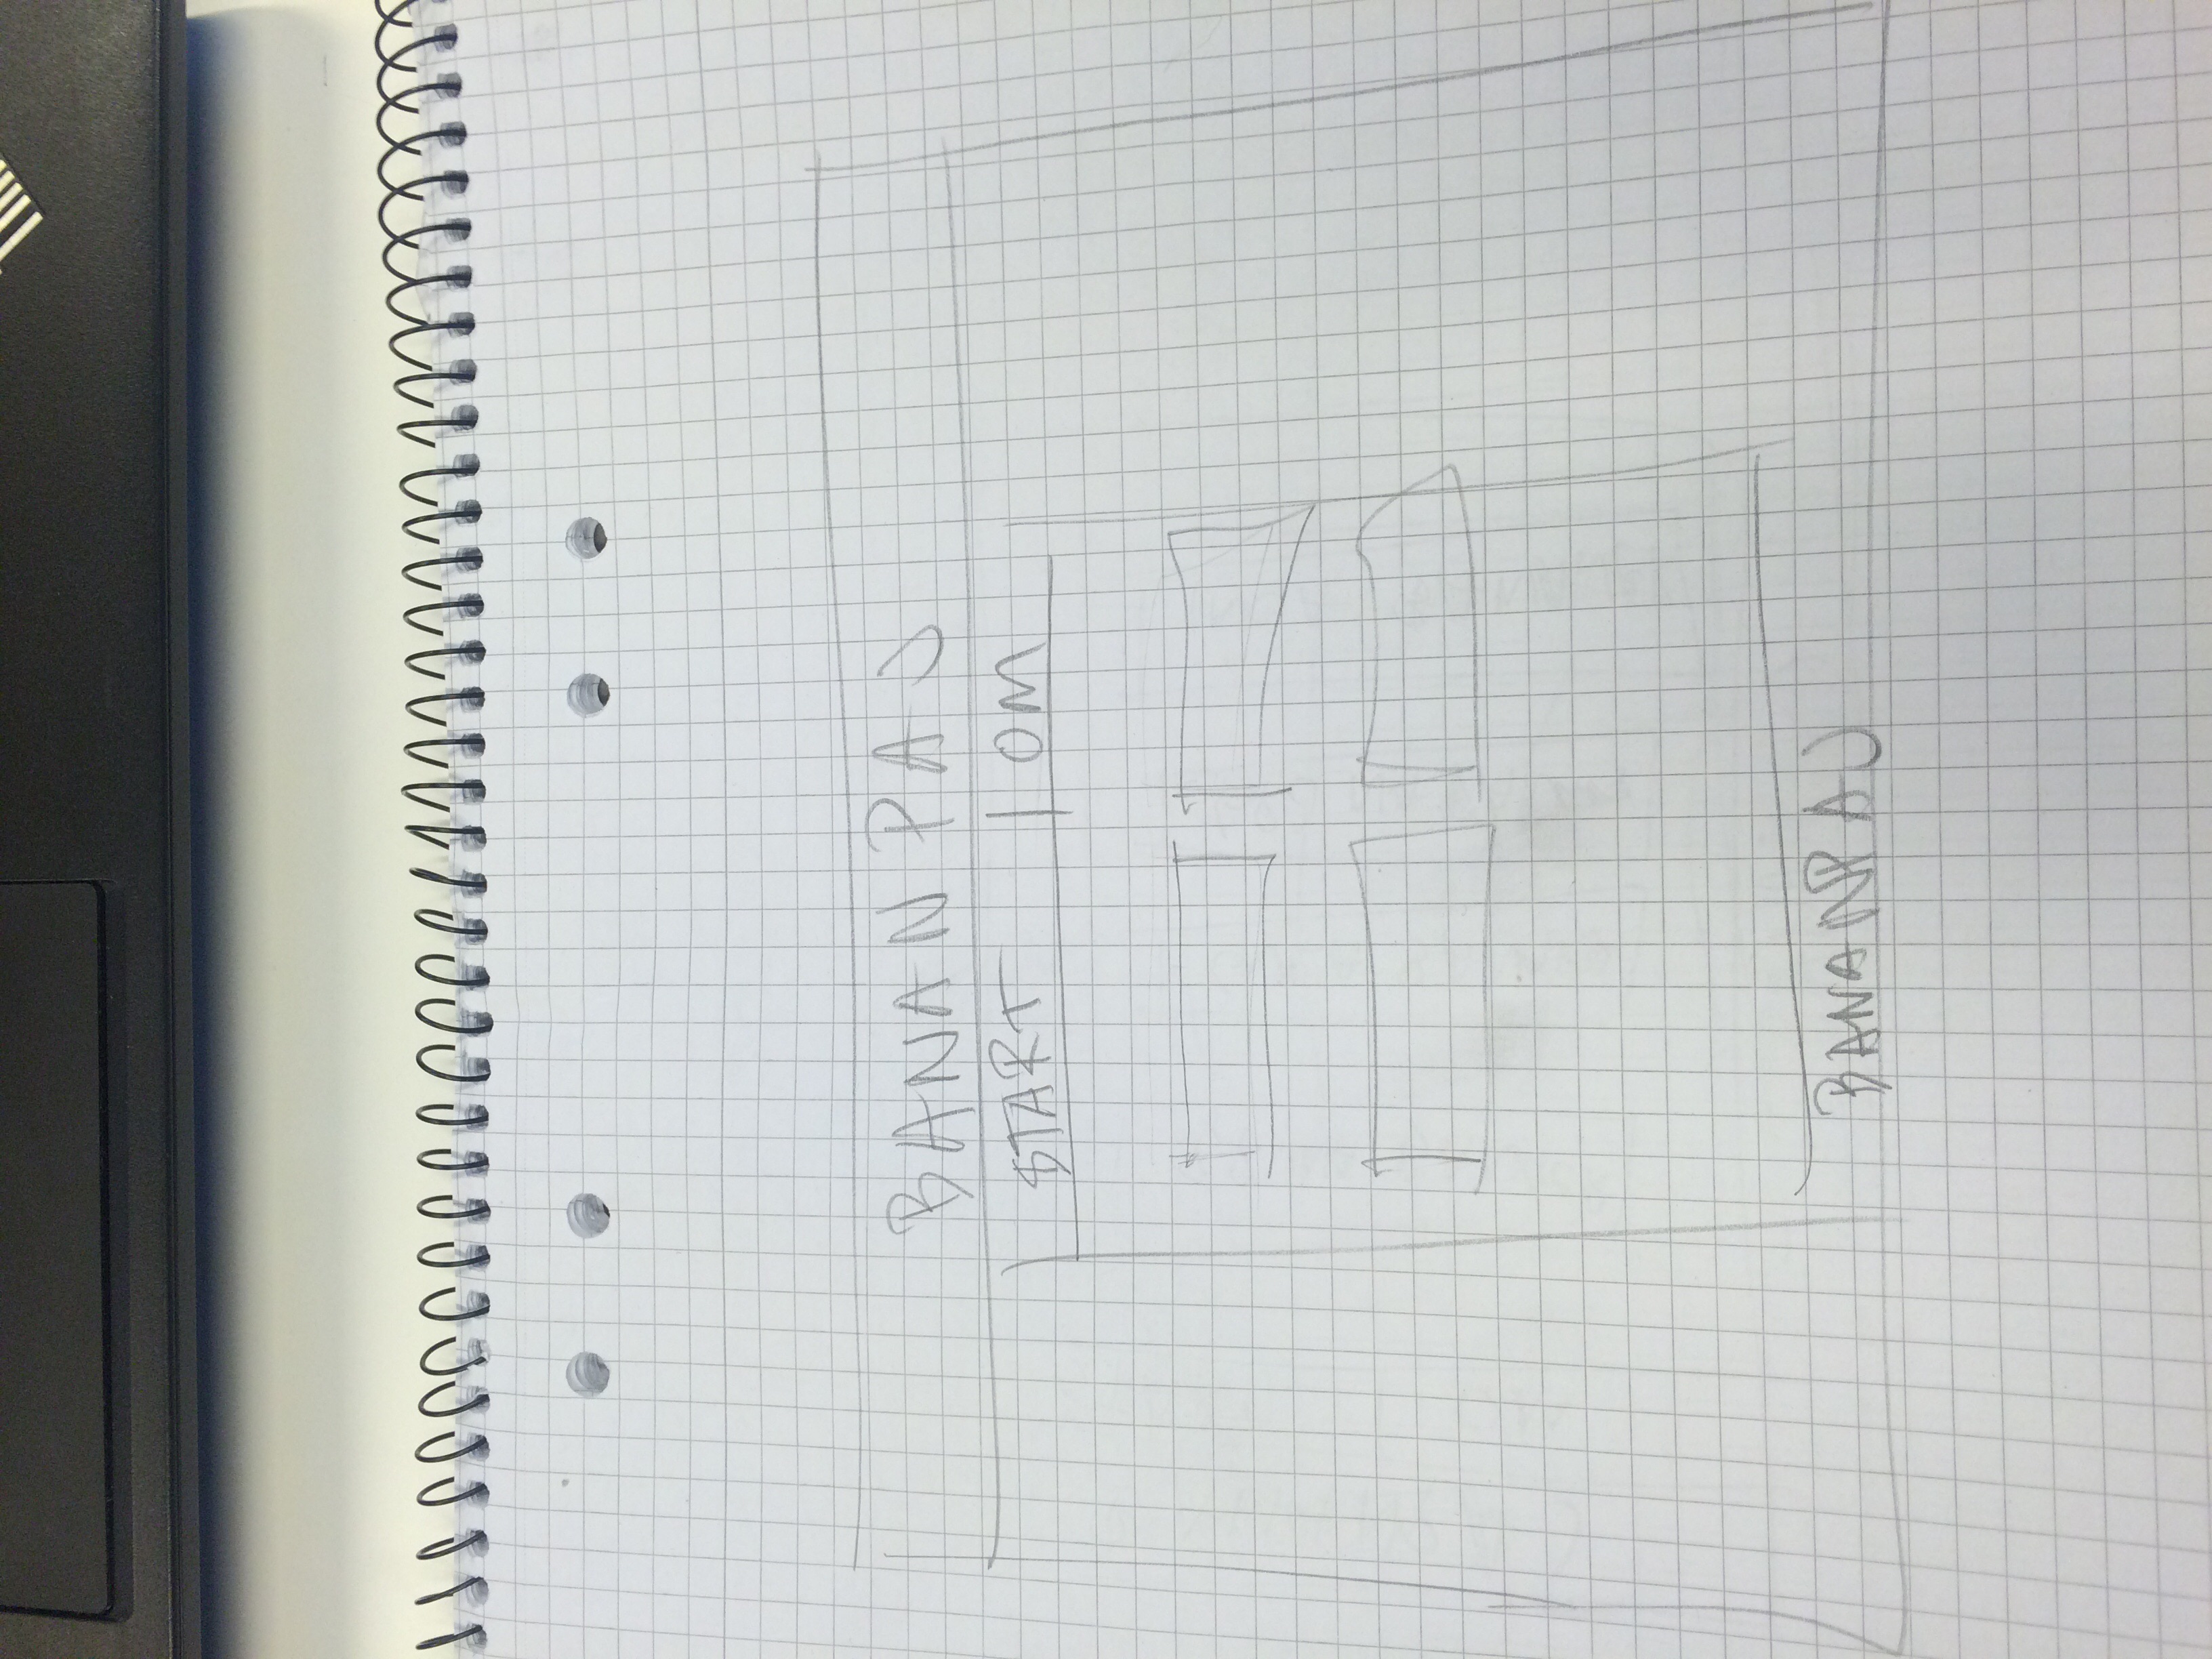 BANANPAJ
START | OM
BANANPAJ